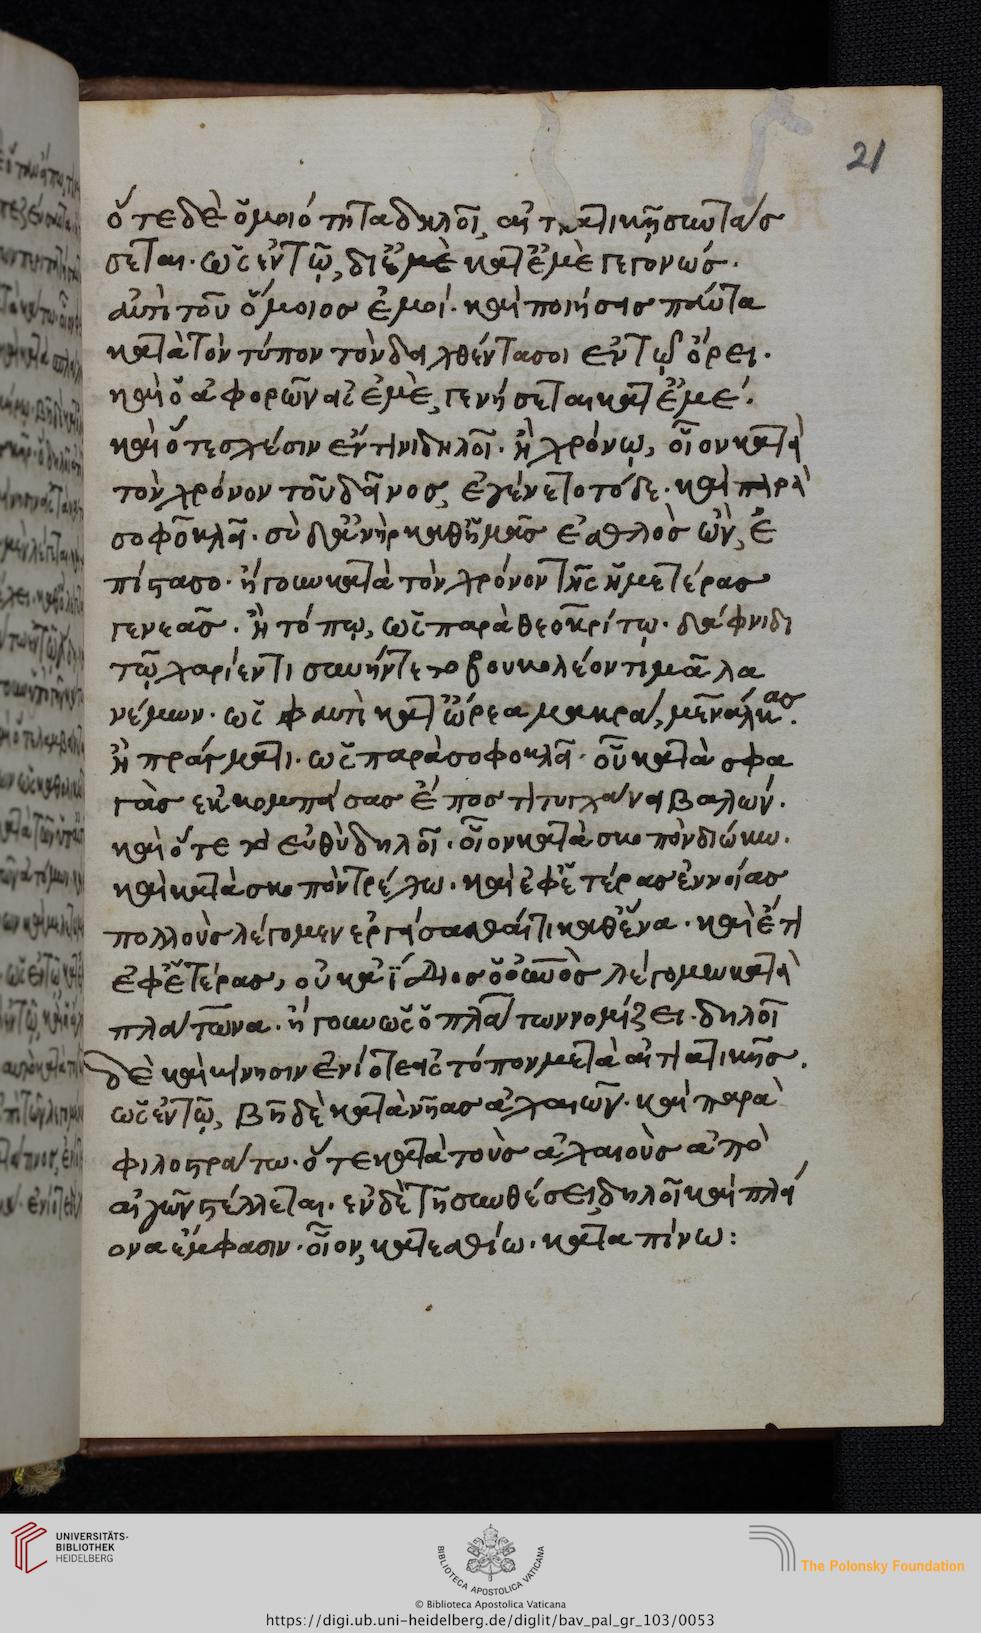 21
ὅτε δὲ ὁμοιότητα δηλοῖ, αἰτιατικῇ συντάσ
σεται. ὡς ἐν τῷ, δι' ἐμὲ κατ' ἐμὲ γεγονώς.
ἀντὶ τοῦ ὅμοιος ἐμοί. καὶ ποιήσεις πάντα
κατὰ τὸν τύπον τὸν δειχθέντα σοι ἐν τῷ ὄρει.
καὶ ὁ ἀφορῶν εἰς ἐμὲ, γενήσεται κατ' ἐμέ.
καὶ ὅτε σχέσιν ἔν τινι δηλοῖ. ἢ χρόνῳ, οἷον κατὰ
τὸν χρόνον τοῦ δεῖνος, ἐγένετο τόδε. καὶ παρὰ
σοφοκλεῖ. σὺ δ' ἀνὴρ καθ' ἡμᾶς ἐσθλὸς ὢν, ἐ
πίστασο. ἤγουν κατὰ τὸν χρόνον τῆς ἡμετέρας
γενεᾶς. ἢ τόπῳ, ὡς παρὰ θεοκρίτῳ. δάφνιδι
τῷ χαρίεντι συνήντετο βουκολέοντι μᾶλα
νέμων. ὡς φαντὶ κατ' ὤρεα μακρά, μενάλκας.
ἢ πράγματι. ὡς παρὰ σοφοκλεῖ. οὐ κατὰ σφα
γὰς ἐκκομπάσας ἔπος τι τυγχάνει βαλών.
καὶ ὅτε τὸ εὐθὺ δηλοῖ. οἷον κατὰ σκοπὸν διώκω.
καὶ κατὰ σκοπὸν τρέχω. καὶ ἐφ' ἑτέρας ἐννοίας
πολλοὺς λέγομεν ἐργάσασθαί τι καθ' ἕνα. καὶ ἔτι
ἐφ' ἑτέρας, οὐκ ἀΐδιος ὁ οὐρανὸς λέγομεν κατὰ
πλάτωνα. ἤγουν ὡς ὁ πλάτων νομίζει. δηλοῖ
δὲ καὶ κίνησιν ἐνίοτε εἰς τόπον μετὰ αἰτιατικῆς.
ὡς ἐν τῷ, βῆ δὲ κατὰ νῆας ἀχαιῶν. καὶ παρὰ
φιλοστράτω. ὅτε κατὰ τοὺς ἀχαιοὺς ἀπὸ
αἰγῶν στέλλεται. ἐν δὲ τῇ συνθέσει, δηλοῖ καὶ πλεί
ονα ἔμφασιν. οἷον, κατεσθίω. καταπίνω:
UNIVERSITÄTS-
BIBLIOTHEK
HEIDELBERG
BIBLIOTECA APOSTOLICA VATICANA
The Polonsky Foundation
© Biblioteca Apostolica Vaticana
https://digi.ub.uni-heidelberg.de/diglit/bav_pal_gr_103/0053